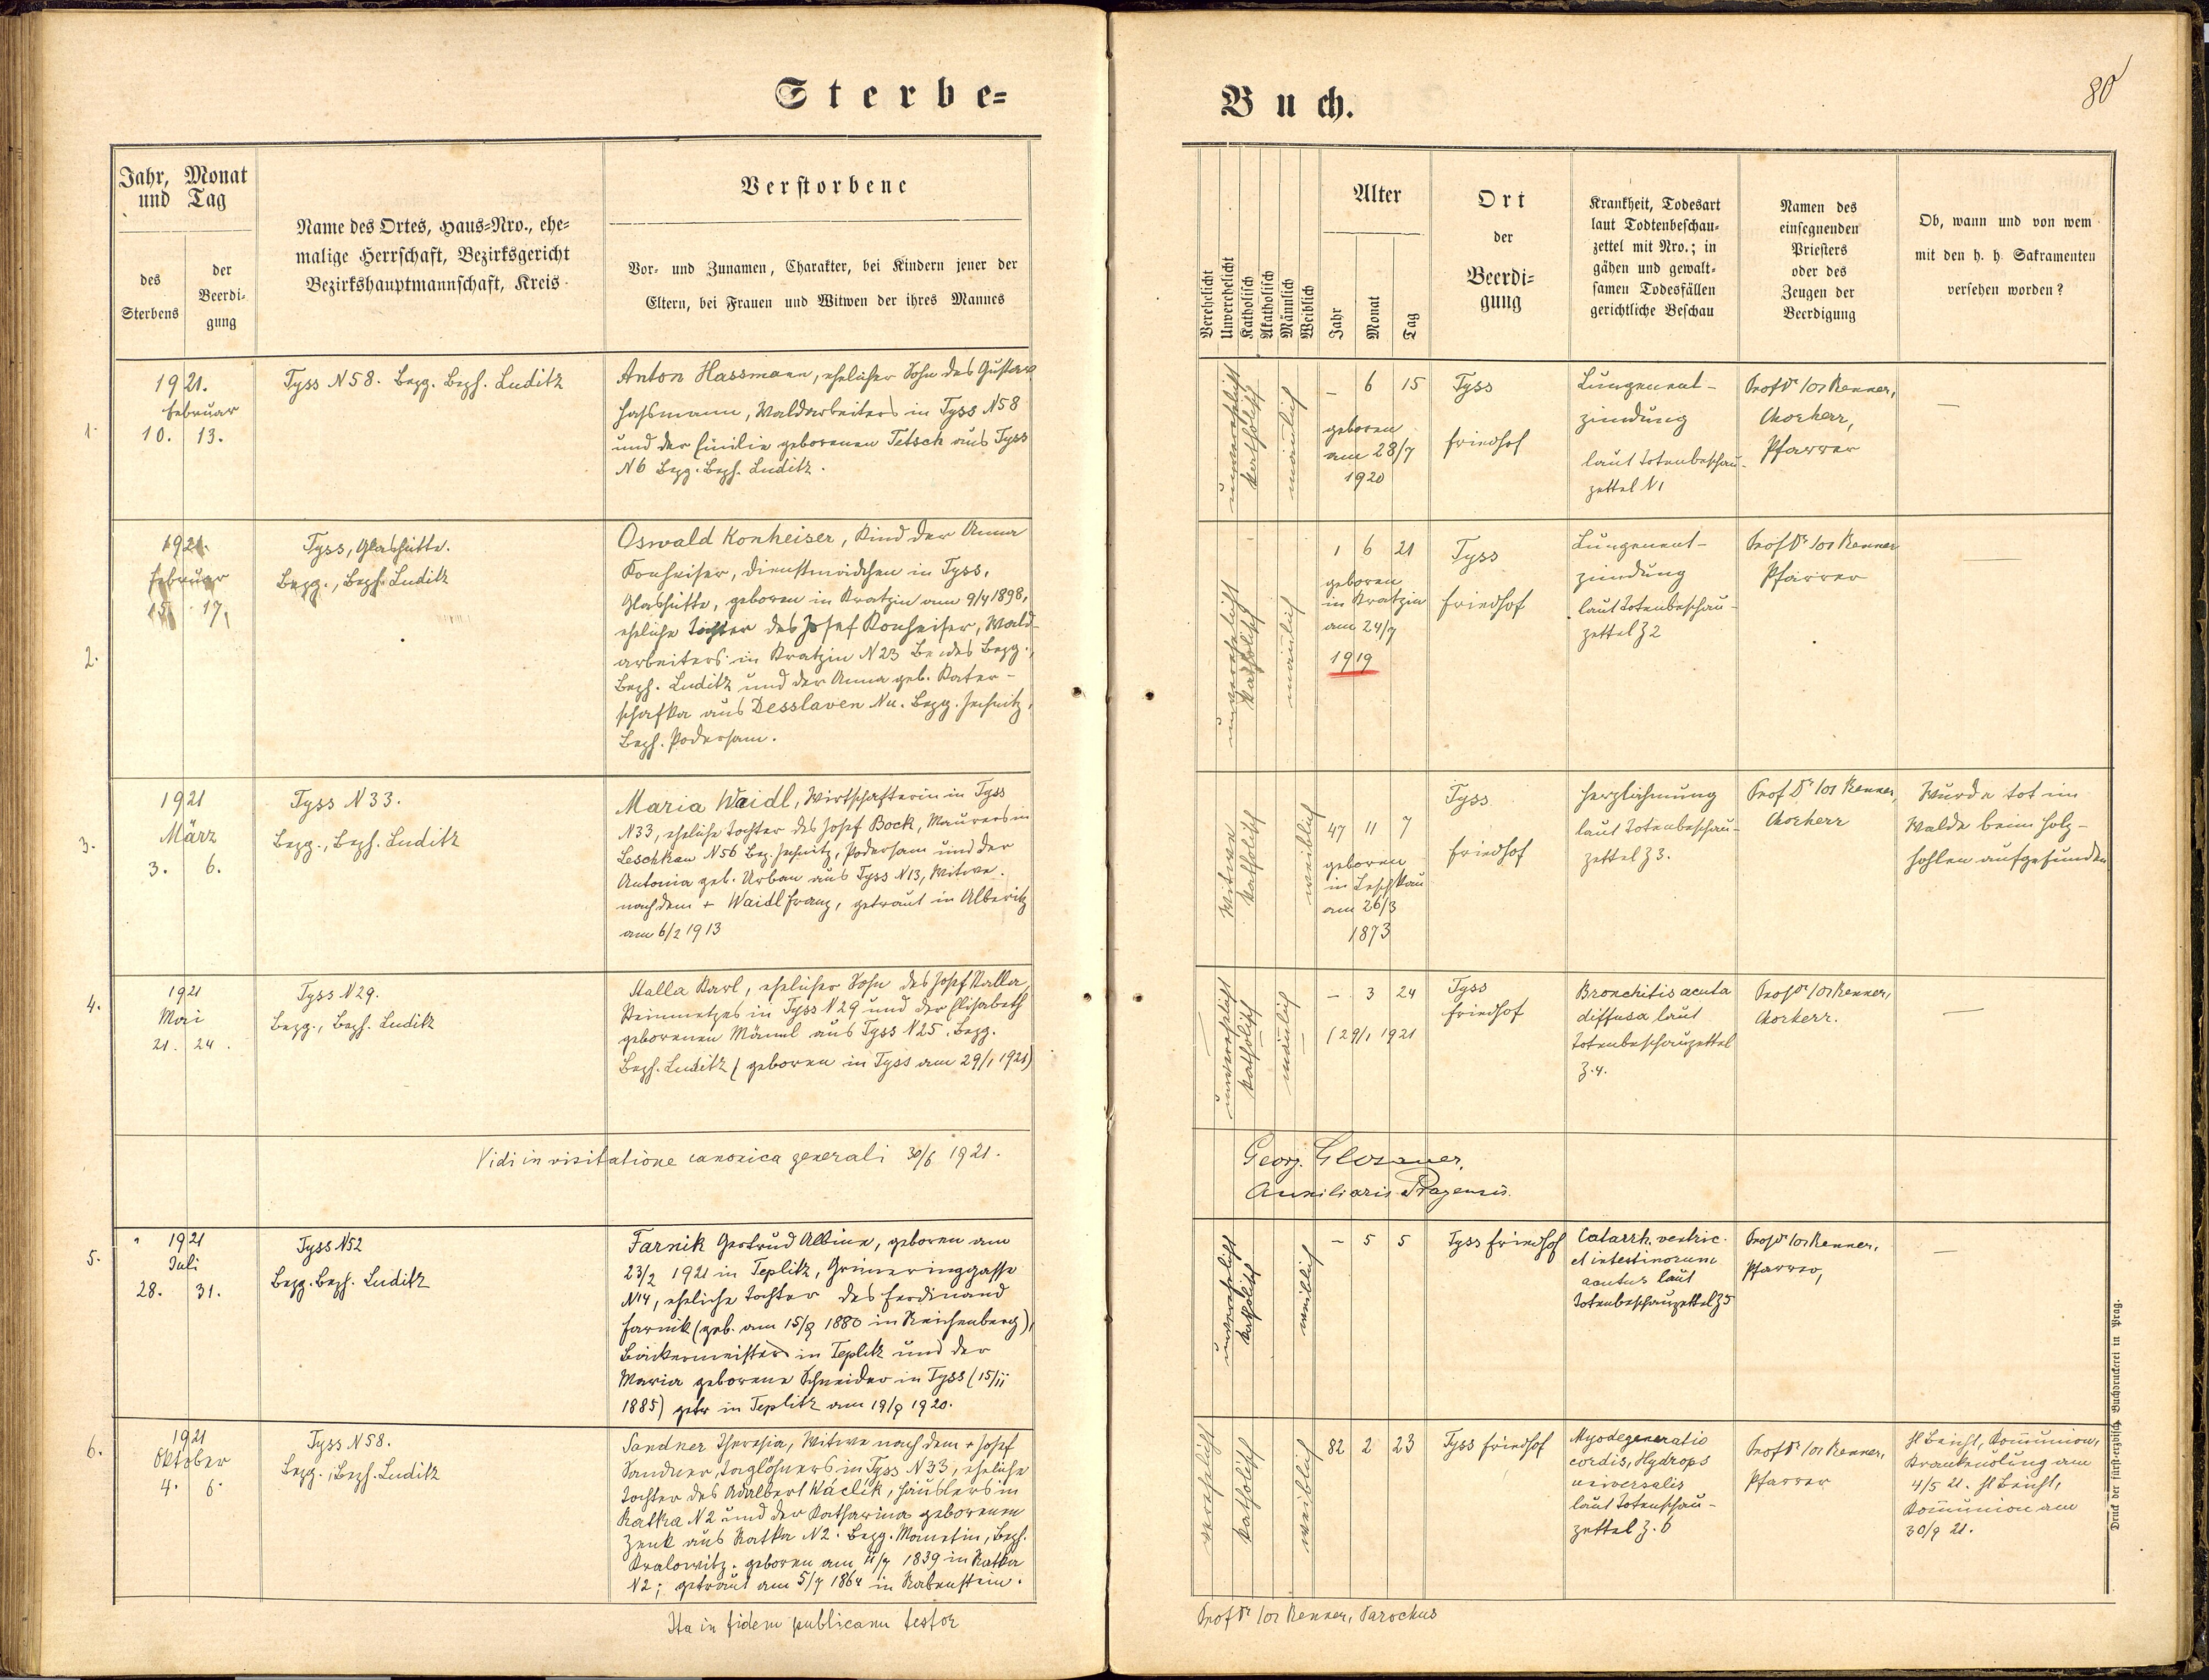 Sterbe-
Jahr, Monat
und Tag
des
Sterbens
der
Beerdi-
gung
Name des Ortes, Haus-Nro., ehe-
malige Herrschaft, Bezirksgericht
Bezirkshauptmannschaft, Kreis
Verstorbene
Vor- und Zunamen, Charakter, bei Kindern jener der
Eltern, bei Frauen und Witwen der ihres Mannes
1.
1921.
Februar
10. 13.
Tyss N 58. Bezg. Bezh. Luditz
Anton Hassmann, ehelicher Sohn des Gustav
Hassmann, Waldarbeiters in Tyss N 58
und der Emilie geborenen Tetsch aus Tyss
N 6 Bezg. Bezh. Luditz.
2.
1921.
Februar
15. 17.
Tyss, Glashütte.
Bezg., Bezh. Luditz
Oswald Konheiser, Kind der Anna
Konheiser, Dienstmädchen in Tyss,
Glashütte, geboren in Kratzin am 9/4 1898,
eheliche Tochter des Josef Konheiser, Wald-
arbeiters in Kratzin N 23 Beides Bezg.,
Bezh. Luditz und der Anna geb. Kater-
schafka aus Desslaven Nu. Bezg. Jechnitz,
Bezh. Podersam.
3.
1921
März
3. 6.
Tyss N 33.
Bezg., Bezh. Luditz
Maria Waidl, Wirtschafterin in Tyss
N 33, eheliche Tochter des Josef Bock, Maurers in
Leschkau N 56 Bez. Jechnitz, Podersam und der
Antonia geb. Urban aus Tyss N 13, Witwe.
nach dem + Waidl Franz, getraut in Alberitz
am 6/2 1913
4.
1921
Mai
21. 24.
Tyss N 29.
Bezg., Bezh. Luditz
Kalla Karl, ehelicher Sohn des Josef Kalla,
Steinmetzes in Tyss N 29 und der Elisabeth
geborenen Männl aus Tyss N 25. Bezg.
Bezh. Luditz (geboren in Tyss am 29/1 1921)
Vidi in visitatione canonica generali 30/6 1921.
5.
1921
Juli
28. 31.
Tyss N 52
Bezg. Bezh. Luditz
Farnik Gertrud Albine, geboren am
23/2 1921 in Teplitz, Gruneringgasse
N 14, eheliche Tochter des Ferdinand
Farnik (geb. am 15/9 1880 in Reichenberg),
Bäckermeisters in Teplitz und der
Maria geborene Schneider in Tyss (15/11
1885) getr in Teplitz am 19/9 1920.
6.
1921
Oktober
4. 6.
Tyss N 58.
Bezg., Bezh. Luditz
Sandner Theresia, Witwe nach dem + Josef
Sandner, Taglöhners in Tyss N 33, eheliche
Tochter des Adalbert Václik, Häuslers in
Ratka N 2 und der Katharina geborenen
Zenk aus Ratka N 2. Bezg. Manetin, Bezh.
Kralowitz. geboren am 11/7 1839 in Ratka
N 2; getraut am 5/7 1864 in Rabenstein.
Ita in fidem publicam testor
Buch.
80
Verehelicht
Unverehelicht
Katholisch
Akatholisch
Männlich
Weiblich
Alter
Jahr
Monat
Tag
Ort
der
Beerdi-
gung
Krankheit, Todesart
laut Todtenbeschau-
zettel mit Nro.; in
gähen und gewalt-
samen Todesfällen
gerichtliche Beschau
Namen des
einsegnenden
Priesters
oder des
Zeugen der
Beerdigung
Ob, wann und von wem
mit den h. h. Sakramenten
versehen worden?
unverehelicht
katholisch
männlich
— 6 15
geboren
am 28/7
1920
Tyss
Friedhof
Lungenent-
zündung
laut Totenbeschau-
zettel N 1
Prof Dr Ios Renner,
Chorherr,
Pfarrer
—
unverehelicht
katholisch
männlich
1 6 21
geboren
in Kratzin
am 24/7
1919
Tyss
Friedhof
Lungenent-
zündung
laut Totenbeschau-
zettel Z 2
Prof Dr Ios Renner
Pfarrer
—
Witwe
katholisch
weiblich
47 11 7
geboren
in Leschkau
am 26/3
1873
Tyss
Friedhof
Herzlähmung
laut Totenbeschau-
zettel Z 3.
Prof Dr Ios Renner,
Chorherr
Wurde tot im
Walde beim Holz-
hohlen aufgefunden
unverehelicht
katholisch
männlich
— 3 24
(29/1 1921
Tyss
Friedhof
Bronchitis acuta
diffusa laut
Totenbeschauzettel
Z. 4.
Prof Dr Ios Renner,
Chorherr.
—
Georg. Glosauer,
Auxiliaris Pragensis.
unverehelicht
katholisch
weiblich
— 5 5
Tyss Friedhof
Catarrh. ventric.
et intestinorum
acutus laut
Totenbeschauzettel Z 5
Prof Dr Ios Renner,
Pfarrer,
—
verehelicht
katholisch
weiblich
82 2 23
Tyss Friedhof
Myodegeneratio
cordis, Hydrops
universalis
laut Totenschau-
zettel Z. 6
Prof Dr Ios Renner,
Pfarrer
Hl Beicht, Kommunion,
Krankenölung am
4/5 21. Hl Beicht,
Kommunion am
30/9 21.
Prof Dr Ios Renner, Parochus
Druck der fürst-erzbisch. Buchdruckerei in Prag.